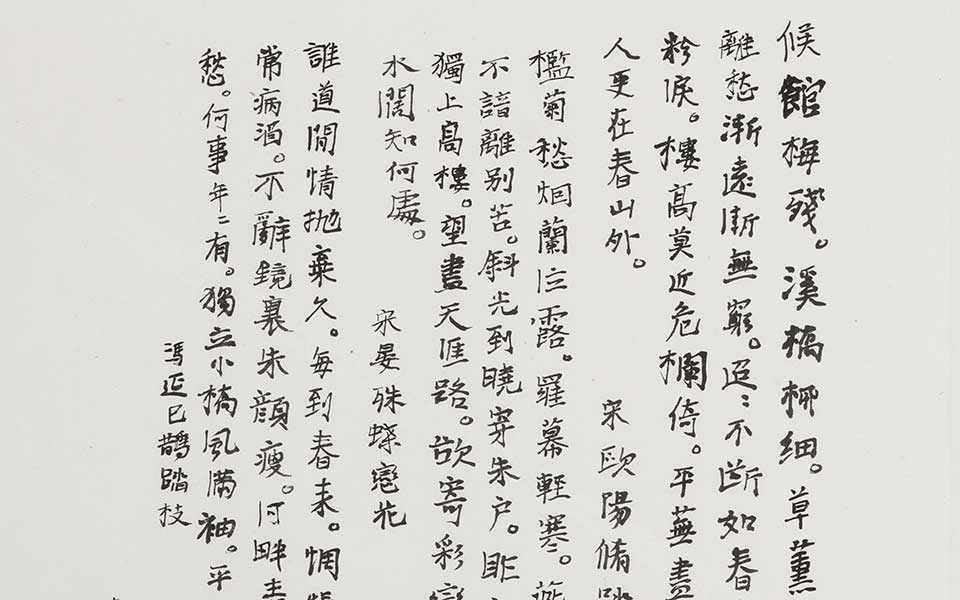 候館梅殘。溪橋柳細。草薰
離愁漸遠漸無窮。迢〻不斷如春
粉淚。樓高莫近危欄倚。平蕪盡
人更在春山外。 宋歐陽脩踏
檻菊愁烟蘭泣露。羅幕輕寒。燕
不諳離别苦。斜光到曉穿朱户。昨
獨上高樓。望盡天涯路。欲寄彩
水闊知何處。 宋晏殊蝶戀花
誰道閒情抛棄久。每到春来。惆悵
常病酒。不辭鏡裏朱顏瘦。河畔青
愁。何事年〻有。獨立小橋風滿袖。平
馮延巳鵲踏枝